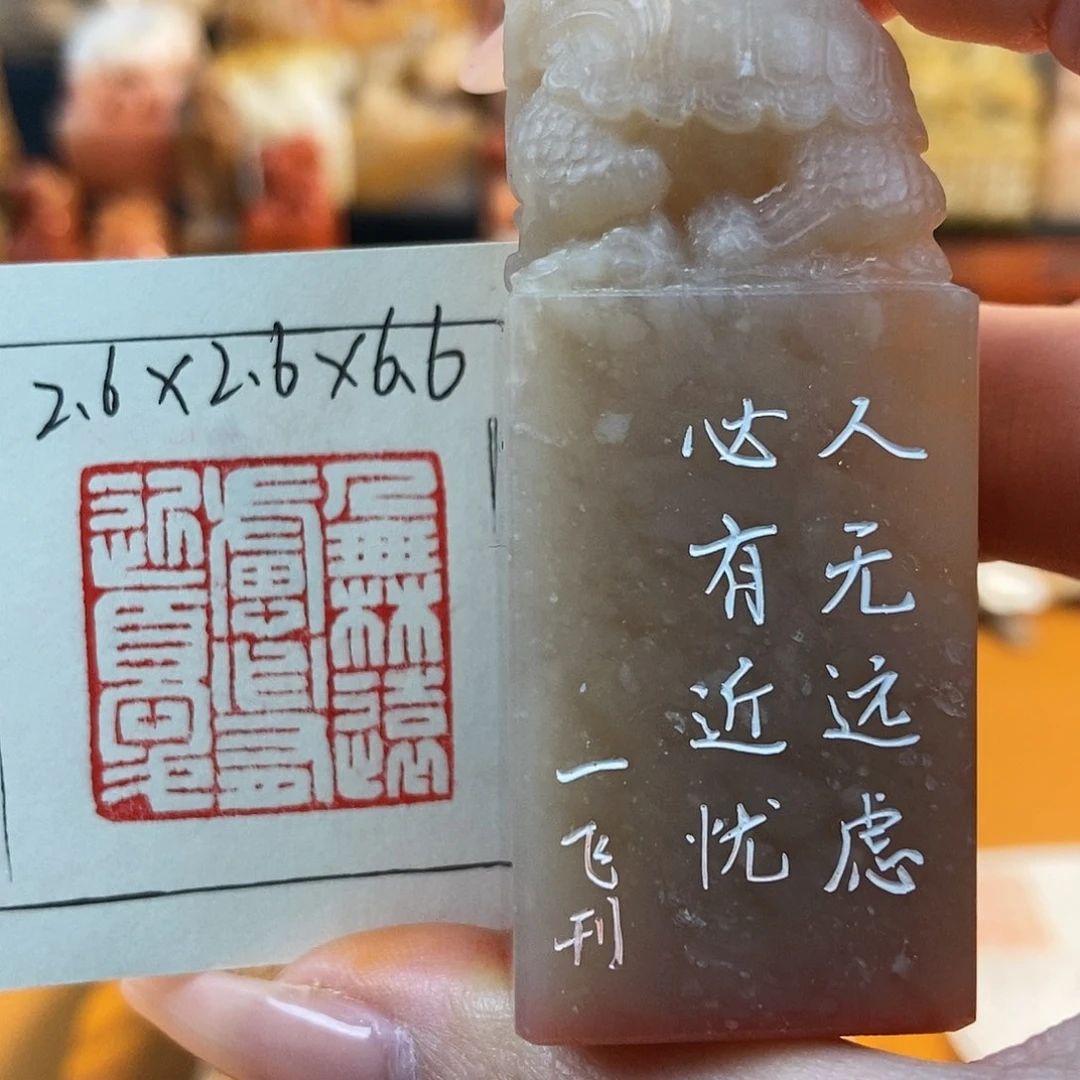 2.6×2.6×6.6
人無遠
慮必有
近憂
人无远虑
必有近忧
一飞刊